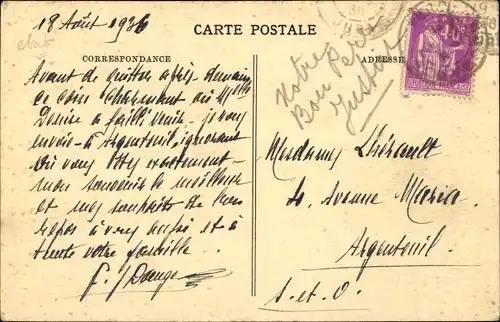 18 Août 1936
CARTE POSTALE
CORRESPONDANCE
ADRESSE
Avant de quitter après demain
ce coin charmant où Melle
Denise a failli venir - je vous
envoie - à Argenteuil, ignorant
où vous êtes exactement -
mon souvenir le meilleur
et mes souhaits de bon
repos à vous aussi et à
toute votre famille.
Notre
Bon Père
40
Mesdames Lhérault
4. Avenue Maria
Argenteuil.
S. et O.